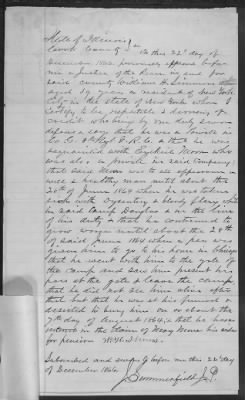 State of Illinois
Cook County } ss On this 22d day of
December 1864 personally appeared before
me a Justice of the Peace in and for
said county William H. Simmons
aged 19 years a resident of New York
City in the State of New York whom I
certify to be respectable & worthy of
credit who being by me duly sworn
deposes & says that he was a Private in
Co C. Regt V.R.C. & that he was
acquainted with Moon who
was also a private in said company
that said Moon was to all appearance
a healthy man until about the
20th of June 1864 when he was taken
sick with Dysentery a bloody flux while
in said Camp Douglas & in the line
of his duty & that he continued to
grow worse until about the 28th
of said June 1864 when a pass was
given him to go to his home in Chicago
that he went with him to the gate of
the camp and saw him present his
pass at the gate & leave the camp
that he did not see him alive after
that but that he was at his funeral &
assisted to bury him on or about the
7th day of August 1864, that he has no
interest in the claim of Mary Moon his widow
for pension
Subscribed and sworn to before me this 22d
day of December 1864
Summerfield J.P.